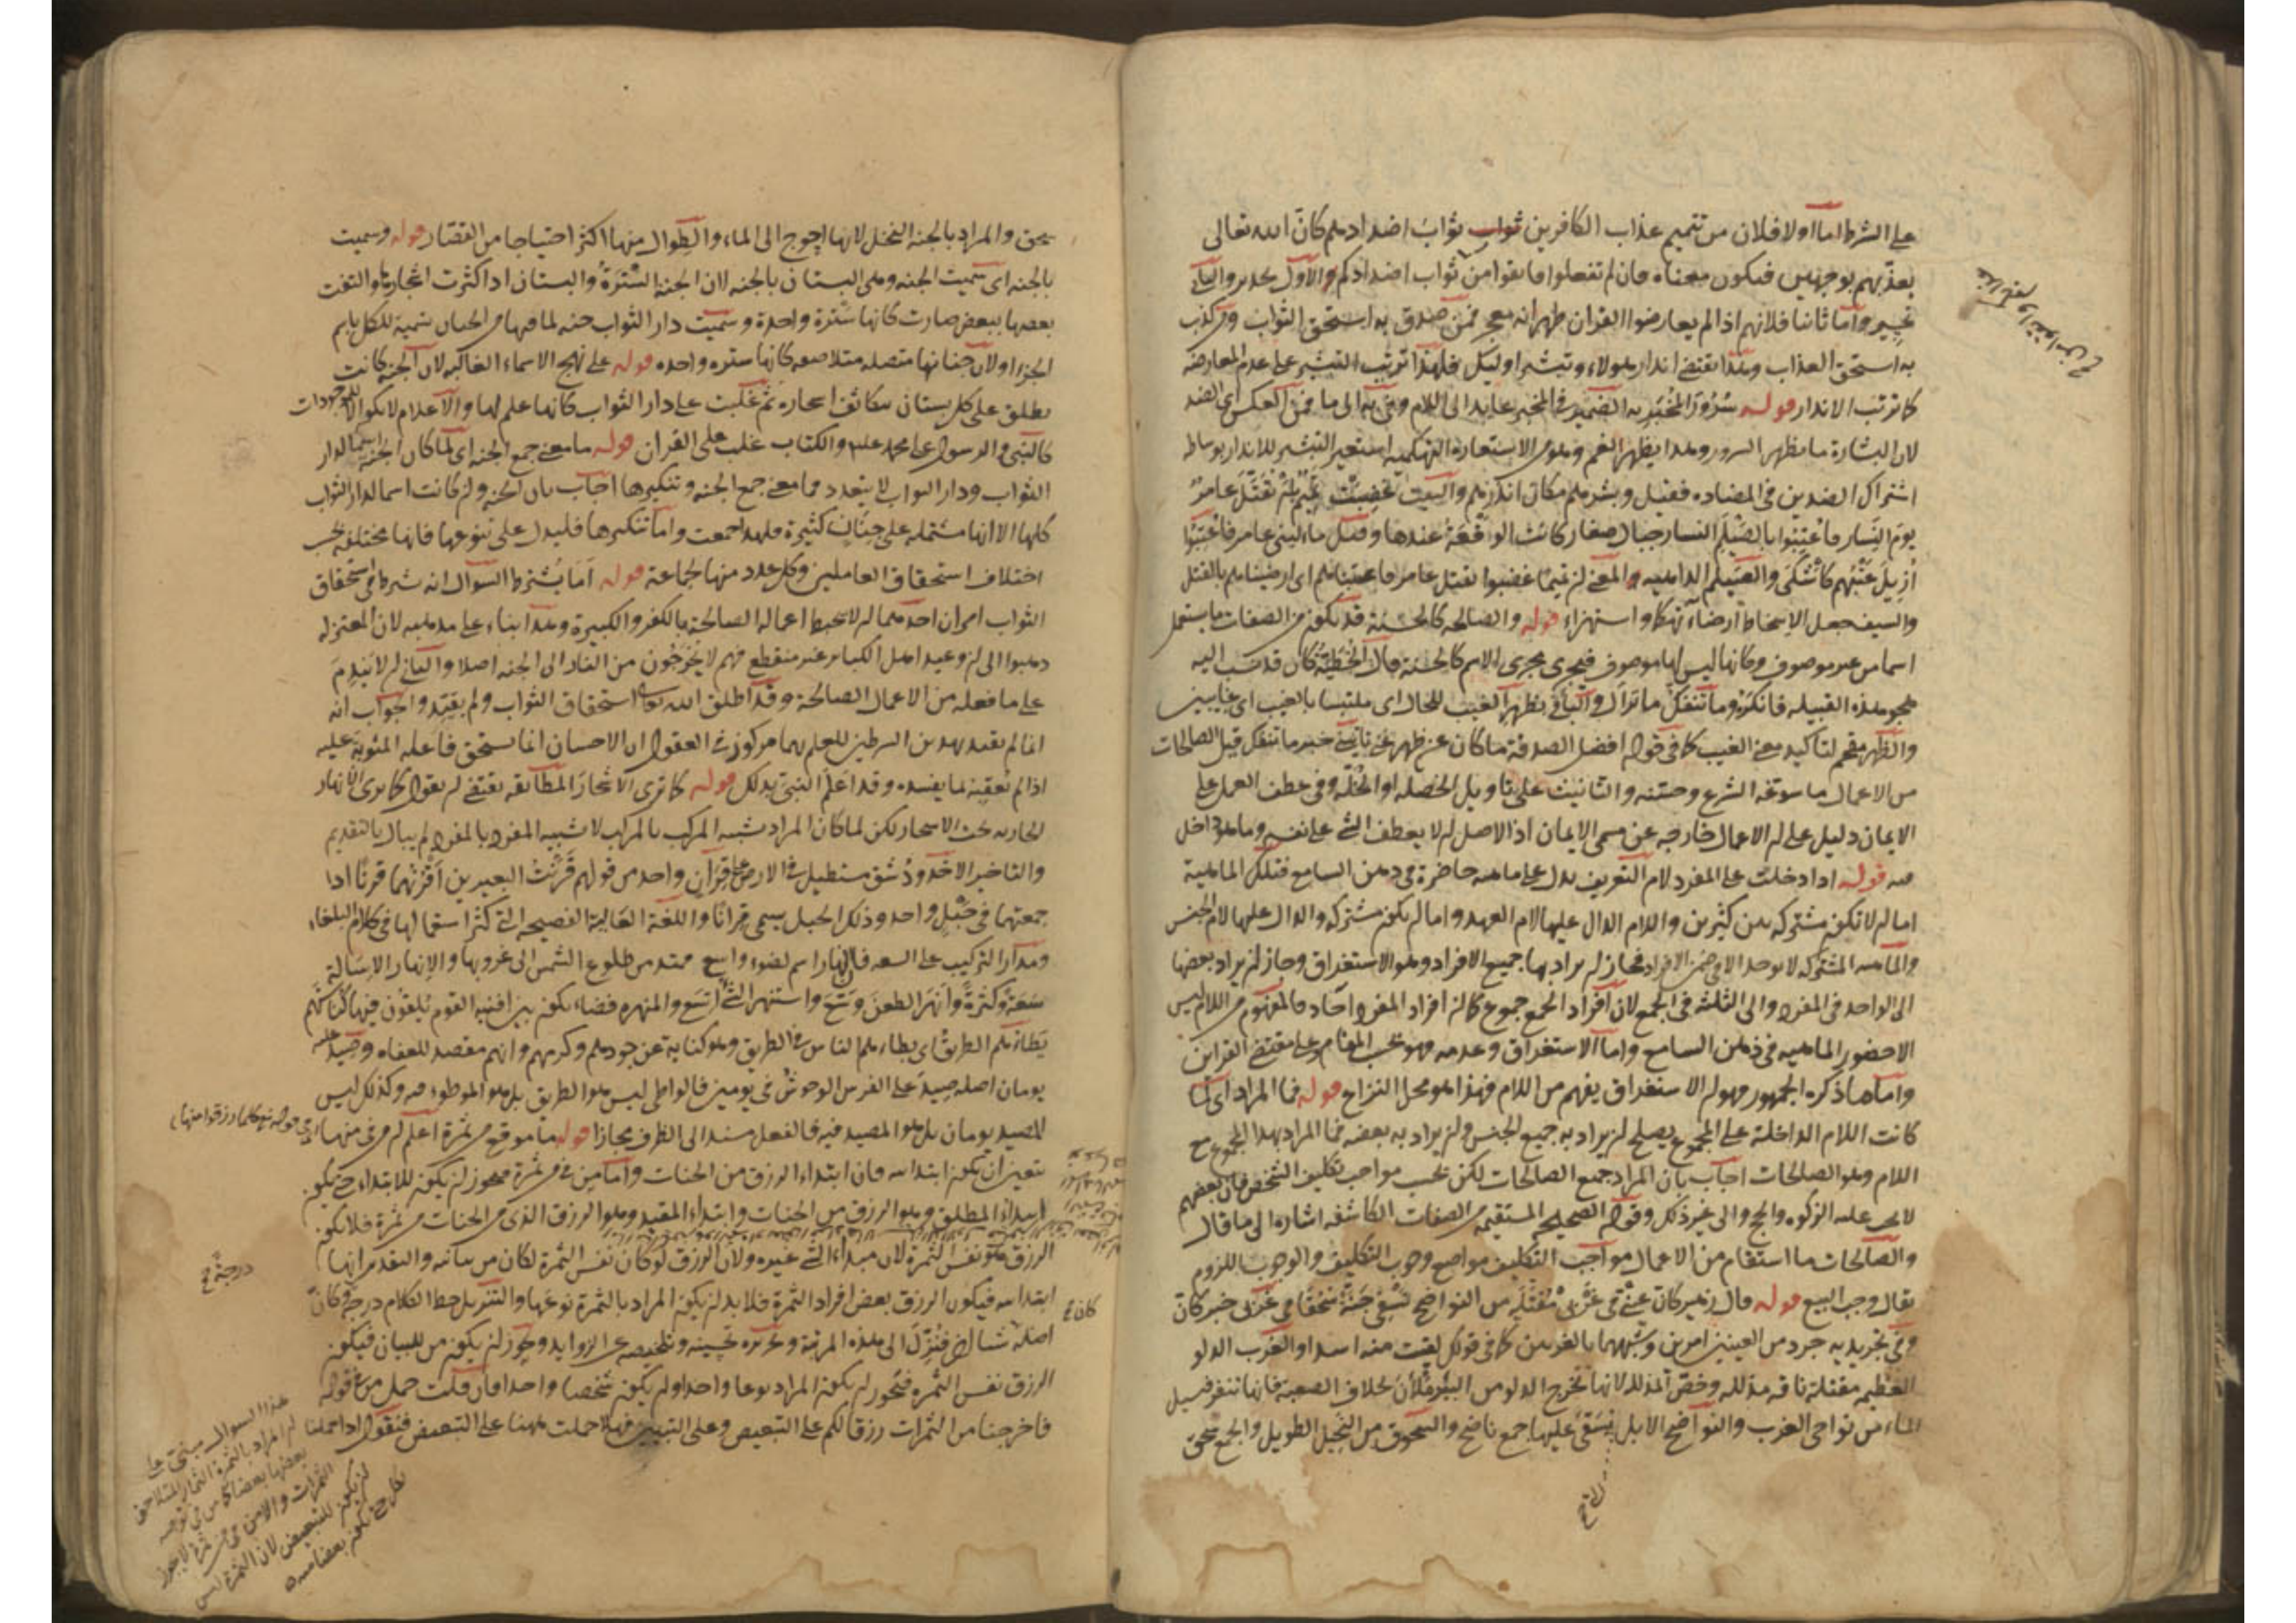 على الشرط اما اولا فلان من تتميم عذاب الكافرين ثواب اضدادهم كان الله تعالى
يعذبهم بوجهين فيكون معناه فان لم تفعلوا فاتقوا من ثواب اضدادكم والاول تحذير والثاني
واما ثانيا فلانهم اذا لم يعارضوا القران ظهر انه معجز فمن صدق به استحق الثواب ومن كذب
به استحق العذاب وهذا يقتضي انذار هولاء وتبشير اوليك فلهذا ترتب التبشير على عدم المعارضة
كما ترتب الانذار قوله سرور المخبر به الضمير في المخبر عايد الى اللام وفي به الى ما فمن العكس اى الضد
لان البشارة ما يظهر السرور وهذا يظهر الغم وهو من الاستعارة التهكمية استعير التبشير للانذار بوساطة
اشتراك الضدين في المضادة فقيل وبشرهم مكان انذرهم والبيت غضبت تميم ان تقتل عامر
يوم النسار فاعتبوا بالصيلم النسار جبال صغار كانت الوقعة عندها وقيل ماء لبنى عامر فاعتبوا
ازيل عتبهم كاشكى والصيلم الداهية والمعنى ان تميما غضبوا لقتل عامر فاعتبناهم اى ارضيناهم بالقتل
والسيف جعل الاسخاط ارضاء تهكما واستهزاء قوله والصالحة كالحسنة قد يكون من الصفات ما يستعمل
اسما من غير موصوف وكانها ليس لها موصوف فيجرى مجرى الاسم كالحسنة قال الحطيئة كان قد نسب اليه
هجو هذه القبيلة فانكره وما تنفك ما تزال والباء في بظهر الغيب للحال اى ملتبسا بالغيب اى غايبين
والظهر مقحم لتاكيد معنى الغيب كما في قوله افضل الصدقة ما كان عن ظهر غنى تاتيني خبر ما تنفك قيل الصالحات
من الاعمال ما سوغه الشرع وحسنه والتانيث على تاويل الخصلة او الخلة وفي عطف العمل على
الايمان دليل على ان الاعمال خارجة عن مسمى الايمان اذ الاصل ان لا يعطف الشي على نفسه وما هو داخل
فيه قوله اذا دخلت على المفرد لام التعريف يدل على ماهية حاضرة في ذهن السامع فتلك الماهية
اما ان لا تكون مشتركة بين كثيرين واللام الدال عليها لام العهد واما ان يكون مشتركة والدال عليها لام الجنس
والماهية المشتركة لا توجد الا في ضمن الافراد فجاز ان يراد بها جميع الافراد وهو الاستغراق وجاز ان يراد بعضها
الى الواحد في المفرد والى الثلثة في الجمع لان افراد الجمع جموع كما ان افراد المفرد آحاد فالمفهوم من اللام ليس
الا حضور الماهية في ذهن السامع واما الاستغراق وعدمه فهو بحسب المقام وعلى مقتضى القراين
واما ما ذكره الجمهور فهو ان الاستغراق يفهم من اللام فهذا هو محل النزاع قوله فما المراد اى لما
كانت اللام الداخلة على المجموع يصلح ان يراد به جميع الجنس وان يراد به بعضه فما المراد بهذا المجموع مع
اللام وهو الصالحات اجاب بان المراد جميع الصالحات لكن بحسب مواجب تكليف الشخص فان بعضهم
لا يجب عليه الزكوة والحج والى غير ذلك وقوله الصحيحة المستقيمة من الصفات الكاشفة اشارة الى ما قال
والصالحات ما استقام من الاعمال مواجب التكليف مواضع وجوب التكليف والوجوب اللزوم
يقال وجب البيع قوله قال زهير كان عيني في غربي مقتلة من النواضح تسقى جنة سحقا في غربي خبر كان
وفي تجريدية جرد من العينين امرين وشبههما بالغربين كما في قولك لقيت منه اسدا والغرب الدلو
العظيمة مقتلة ناقة مذللة وخص المذللة لانها تخرج الدلو من البئر ملأن بخلاف الصعبة فانها تنفر فيسيل
الماء من نواحي الغرب والنواضح الابل يسقى عليها جمع ناضح والسحوق من النخيل الطويل والجمع سحق
سحق والمراد بالجنة النخل لانها احوج الى الماء والطوال منها اكثر احتياجا من القصار قوله وسميت
بالجنة اى سميت الجنة وهى البستان بالجنة لان الجنة السترة والبستان اذا كثرت اشجارها والتفت
بعضها ببعض صارت كانها سترة واحدة وسميت دار الثواب جنة لما فيها من الجنان تسمية للكل باسم
الجزء او لان جنانها متصلة متلاصقة كانها سترة واحدة قوله على نهج الاسماء الغالبة لان الجنة كانت
يطلق على كل بستان متكاثف اشجاره ثم غلبت على دار الثواب كانها علم لها والاعلام لا يكون الا للموجودات
كالنبى والرسول على محمد عليه والكتاب غلب على القران قوله ما معنى جمع الجنة اى لما كان الجنة اسما لدار
الثواب ودار الثواب لا يتعدد فما معنى جمع الجنة وتنكيرها اجاب بان الجنة وان كانت اسما لدار الثواب
كلها الا انها مشتملة على جنان كثيرة فلهذا جمعت واما تنكيرها فليدل على تنوعها فانها مختلفة بحسب
اختلاف استحقاق العاملين وكل عدد منها لجماعة قوله اما يشترط السوال انه شرط في استحقاق
الثواب امران احدهما ان لا يحبط اعماله الصالحة بالكفر والكبيرة وهذا بناء على مذهبه لان المعتزلة
ذهبوا الى ان وعيد اهل الكبائر غير منقطع فهم لا يخرجون من النار الى الجنة اصلا والثاني ان لا يندم
على ما فعله من الاعمال الصالحة وقد اطلق الله تعالى استحقاق الثواب ولم يقيد والجواب انه
انما لم يقيد بهذين الشرطين للعلم بهما مركوز في العقول ان الاحسان انما يستحق فاعله المثوبة عليه
اذا لم يعقبه بما يفسده وقد اعلم النبي بذلك قوله كما ترى الاشجار المطابقة يقتضى ان يقول كما ترى الانهار
الجارية تحت الاشجار لكن لما كان المراد تشبيه المركب بالمركب لا تشبيه المفرد بالمفرد لم يبال بالتقديم
والتاخير الاخدود شق مستطيل في الارض على قران واحد من قولهم قرنت البعيرين اقرنهما قرنا اذا
جمعتهما في حبل واحد وذلك الحبل يسمى قرانا واللغة العالية الفصيحة التي كثر استعمالها في كلام البلغاء
ومدار التركيب على السعة فالنهار اسم لضوء واسع ممتد من طلوع الشمس الى غروبها والانهار الاسالة
سعة وكثرة وانهر الطعن وسع واستنهر الشي اتسع والمنهرة فضاء يكون بين افنية القوم يلقون فيها كناستهم
يطاهم الطريق اى يطاءهم الناس في الطريق وهو كناية عن جودهم وكرمهم وانهم مقصد للعفاة وصيد عليه
يومان اصله صيد على الفرس الوحوش في يومين فالواطى ليس هو الطريق بل هو الموطوء فيه وكذلك ليس
المصيد يومان بل هو المصيد فيه فالفعل مسند الى الظرف مجازا قوله ما موقع من ثمرة اعلم ان من في منها اى في قوله تع كلما رزقوا منها
يتعين ان يكون ابتدائية فان ابتداء الرزق من الجنات واما من في من ثمرة فيجوز ان يكون للابتداء حتى يكون
ابتداء المطلق وهو الرزق من الجنات وابتداء المقيد وهو الرزق الذى من الجنات من ثمرة فلا يكون
الرزق هو نفس الثمرة لان مبداء الشي غيره ولان الرزق لو كان نفس الثمرة لكان من بيانية والتقدير انها
ابتدائية فيكون الرزق بعض افراد الثمرة فلا بد ان يكون المراد بالثمرة نوعها والتنزيل حط الكلام درجة وكان
كان
درجة
اصله شاك فنزل الى هذه المرتبة وتحريره تحسينه وتلخيصه عن الزوايد ويجوز ان يكون من للبيان فيكون
الرزق نفس الثمرة فيجوز ان يكون المراد نوعا واحدا وان يكون شخصا واحدا فان قلت حمل من في قوله
فاخرجنا من الثمرات رزقا لكم على التبعيض وعلى التبيين فهلا حملت ههنا على التبعيض فنقول اذا حملنا
هذا السوال مبنى على
ان المراد بالثمرة الثمار المتلاحق